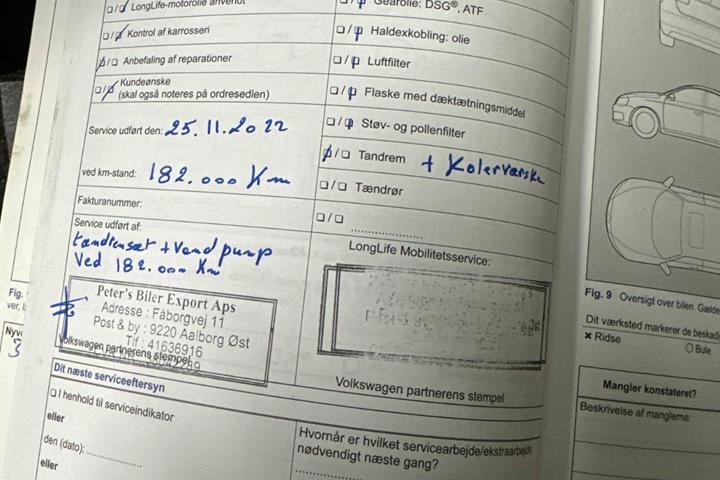 LongLife-motorolie anvendt
Kontrol af karrosseri
Anbefaling af reparationer
Kundeønske
(skal også noteres på ordresedlen)
Service udført den: 25.11.2022
ved km-stand: 182.000 Km
Fakturanummer:
Service udført af:
tandremsæt + Vand pump
Ved 182.000 Km
Peter's Biler Export Aps
Adresse : Fåborgvej 11
Post & by : 9220 Aalborg Øst
Tlf : 41636916
Volkswagen partnerens stempel
Gearolie: DSG®, ATF
Haldexkobling: olie
Luftfilter
Flaske med dæktætningsmiddel
Støv- og pollenfilter
Tandrem + Kølerværske
Tændrør
LongLife Mobilitetsservice:
Volkswagen partnerens stempel
Dit næste serviceeftersyn
I henhold til serviceindikator
eller
den (dato):
eller
Hvornår er hvilket servicearbejde/ekstraarbejde
nødvendigt næste gang?
Fig.
ver,
Nyv
Fig. 9 Oversigt over bilen. Gælde
Dit værksted markerer de beskadi
Ridse
Bule
Mangler konstateret?
Beskrivelse af manglerne: